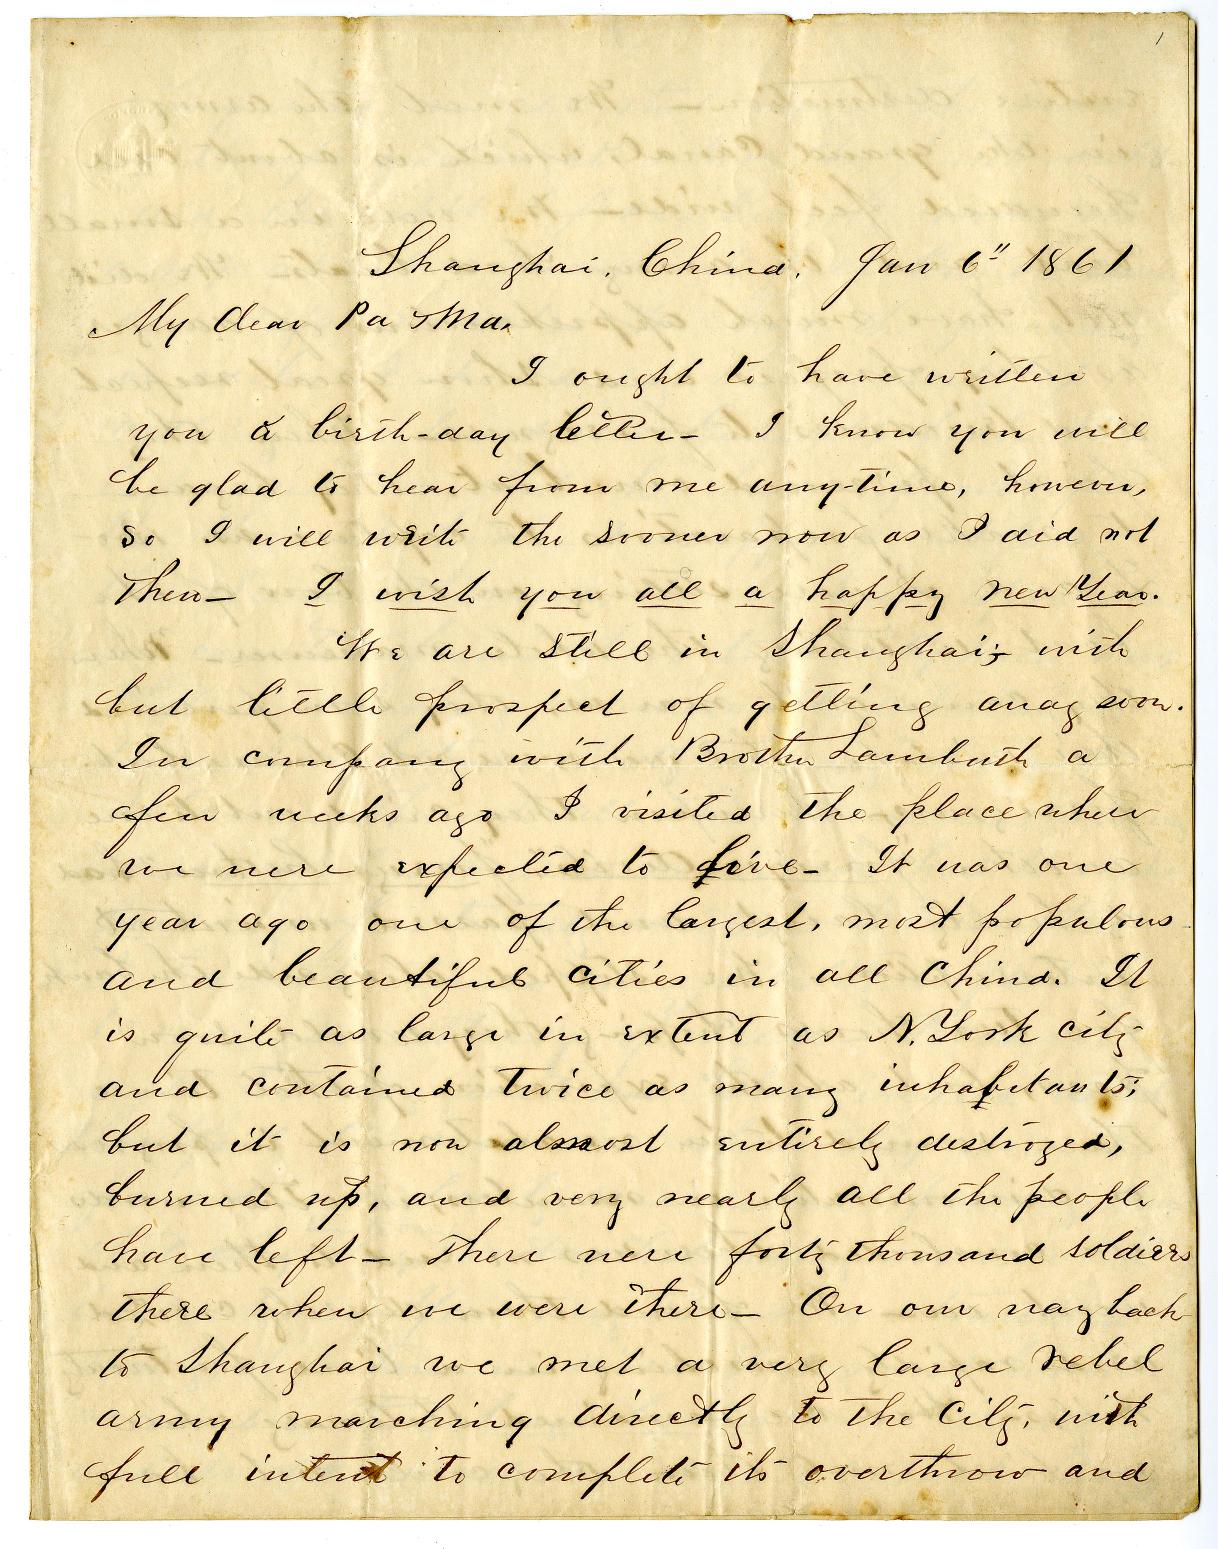 1
Shanghai. China. Jan 6" 1861
My dear Pa & Ma.
I ought to have written
you a birth-day letter - I know you will
be glad to hear from me any-time, however,
so I will write the sooner now as I did not
then - I wish you all a happy new Year.
We are still in Shanghai; with
but little prospect of getting away soon.
In company with Brother Lambuth a
few weeks ago I visited the place where
we were expected to live - It was one
year ago one of the largest, most populous
and beautiful cities in all China. It
is quite as large in extent as N. York city
and contained twice as many inhabitants;
but it is now almost entirely destroyed,
burned up, and very nearly all the people
have left - There were forty thousand soldiers
there when we were there - On our way back
to Shanghai we met a very large rebel
army marching directly to the City, with
full intent to complete its overthrow and